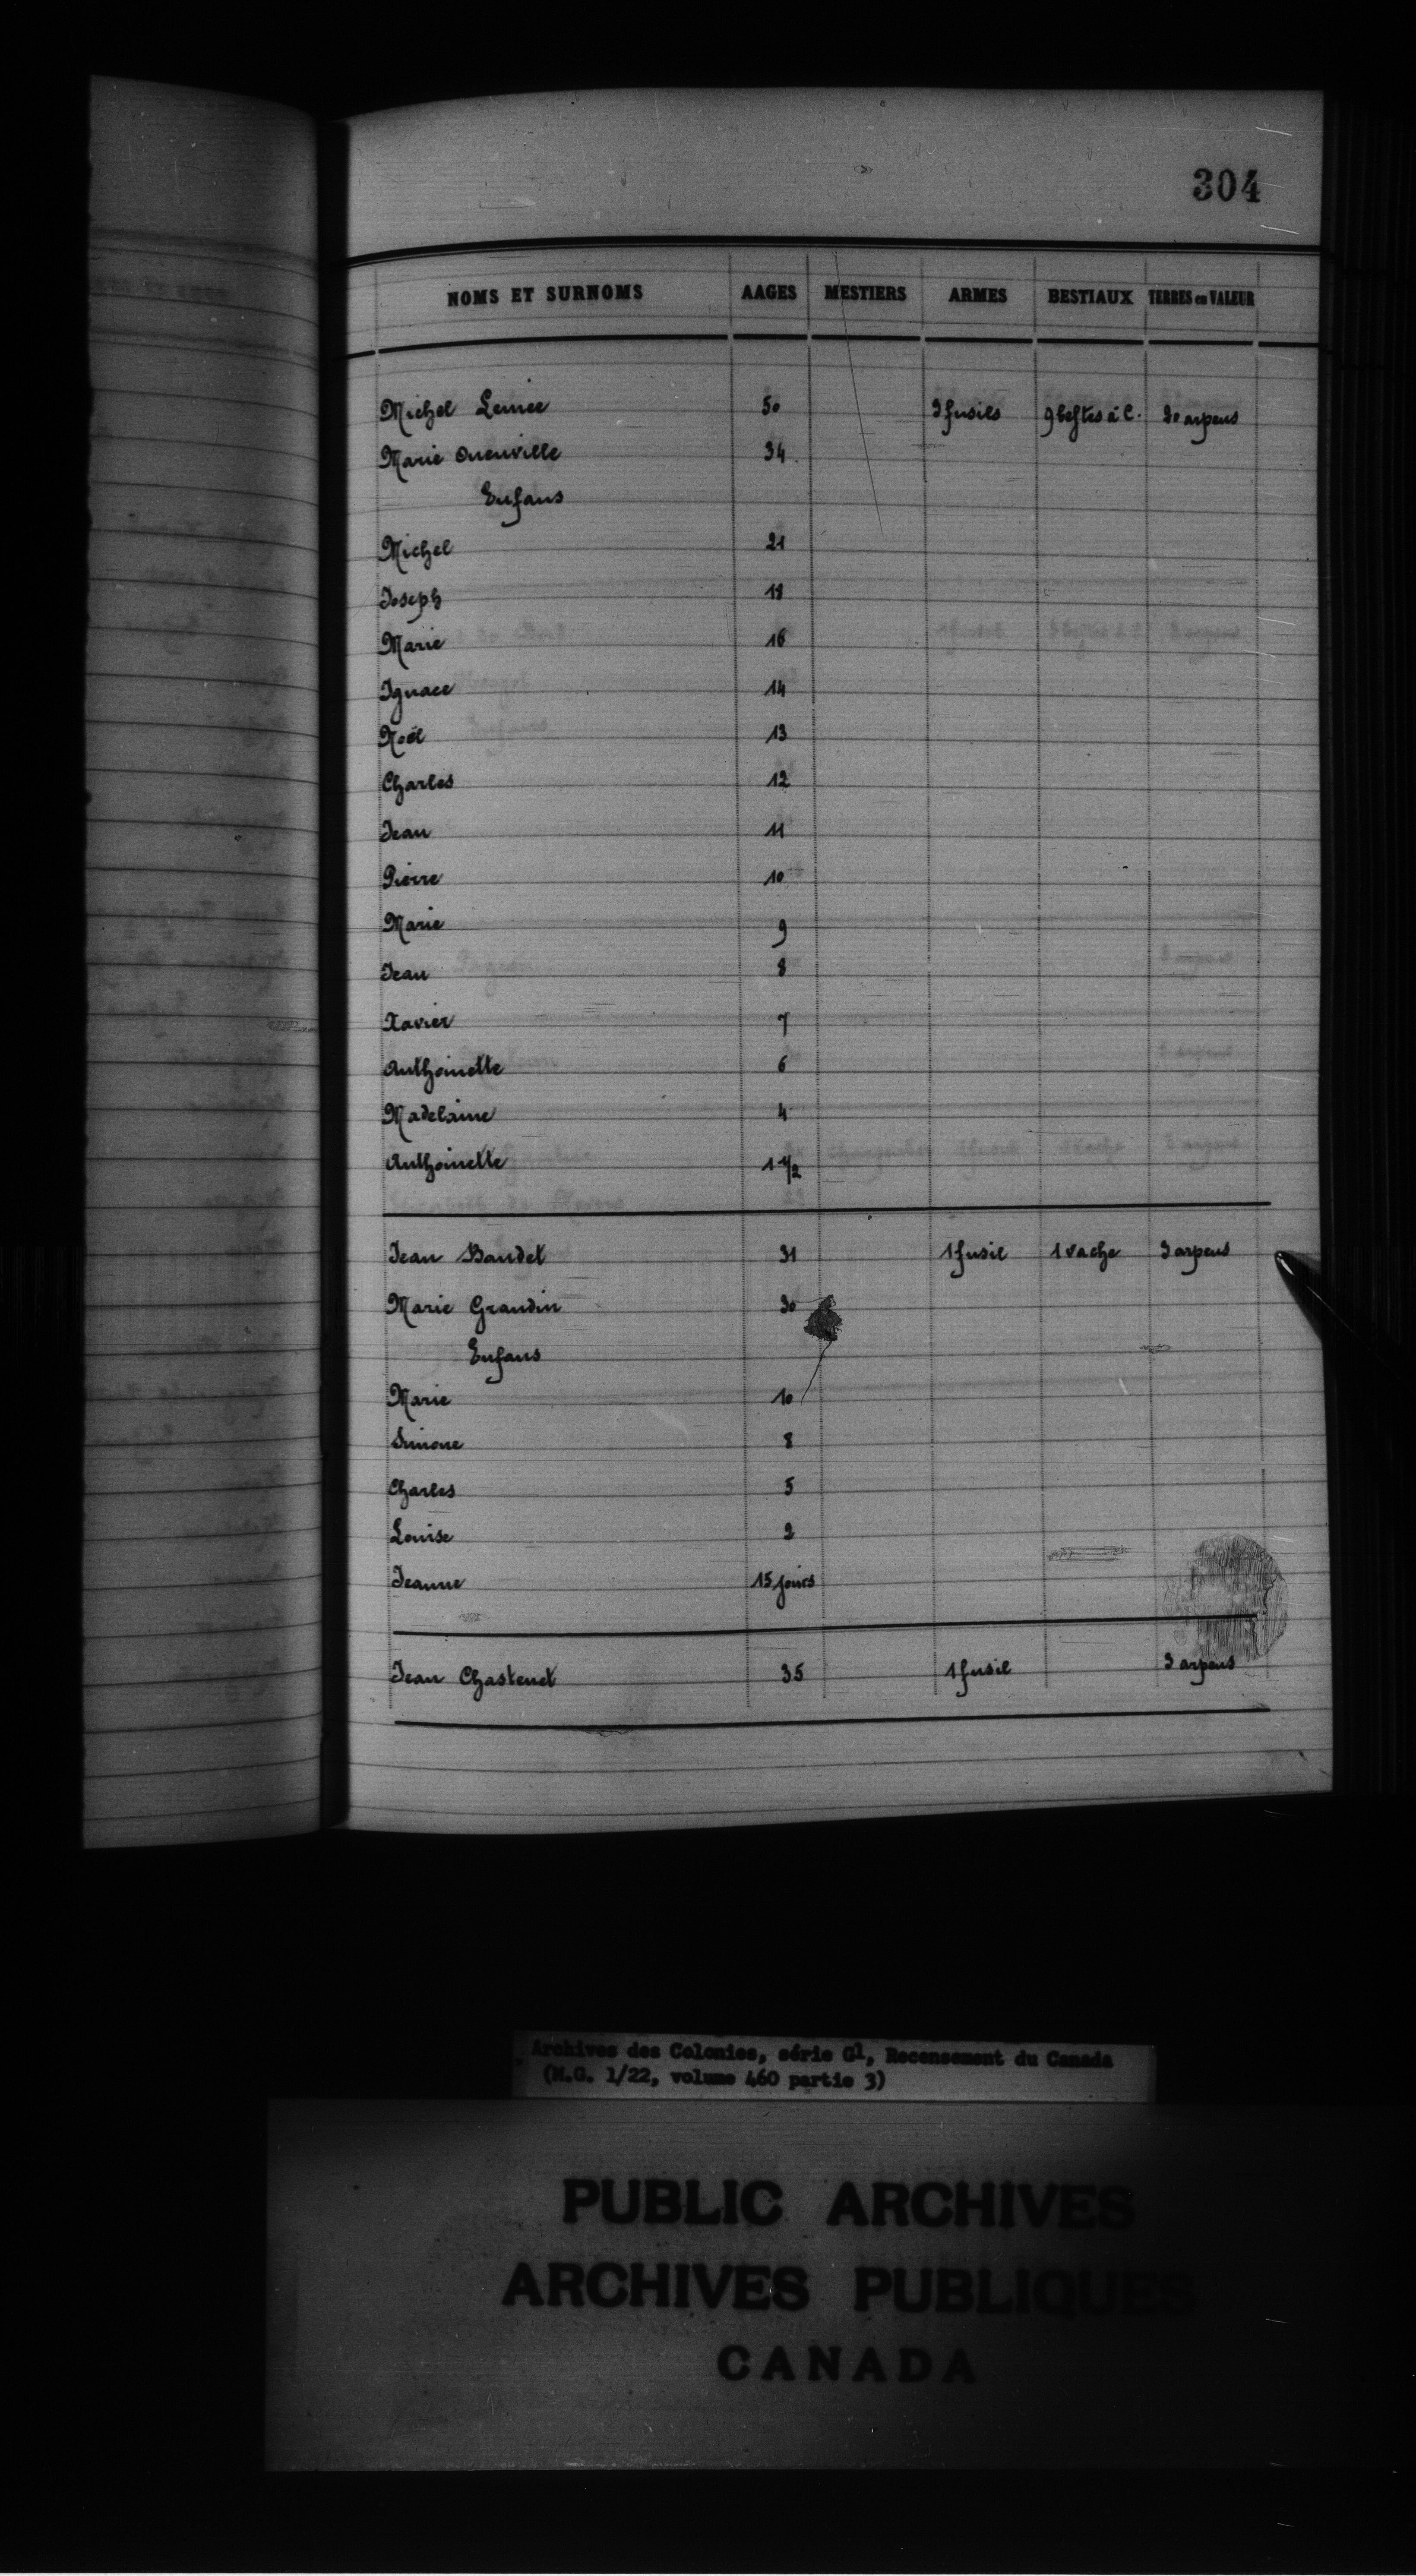 304
NOMS ET SURNOMS AAGES MESTIERS ARMES BESTIAUX TERRES en VALEUR
Michel Lemee 50 3 fusils 9 bestes à C. 30 arpens
Marie Oneuville 34
Enfans
Michel 21
Joseph 18
Marie 16
Ignace 14
Noël 13
Charles 12
Jean 11
Pierre 10
Marie 9
Jean 8
Xavier 7
Anthoinette 6
Madelaine 4
Anthoinette 1 1/2
Jean Baudet 31 1 fusil 1 vache 3 arpens
Marie Grandin 30
Enfans
Marie 10
Simone 8
Charles 5
Louise 2
Jeanne 15 jours
Jean Chastenet 35 1 fusil 3 arpens
Archives des Colonies, série G1, Recensement du Canada
(M.G. 1/22, volume 460 partie 3)
PUBLIC ARCHIVES
ARCHIVES PUBLIQUES
CANADA